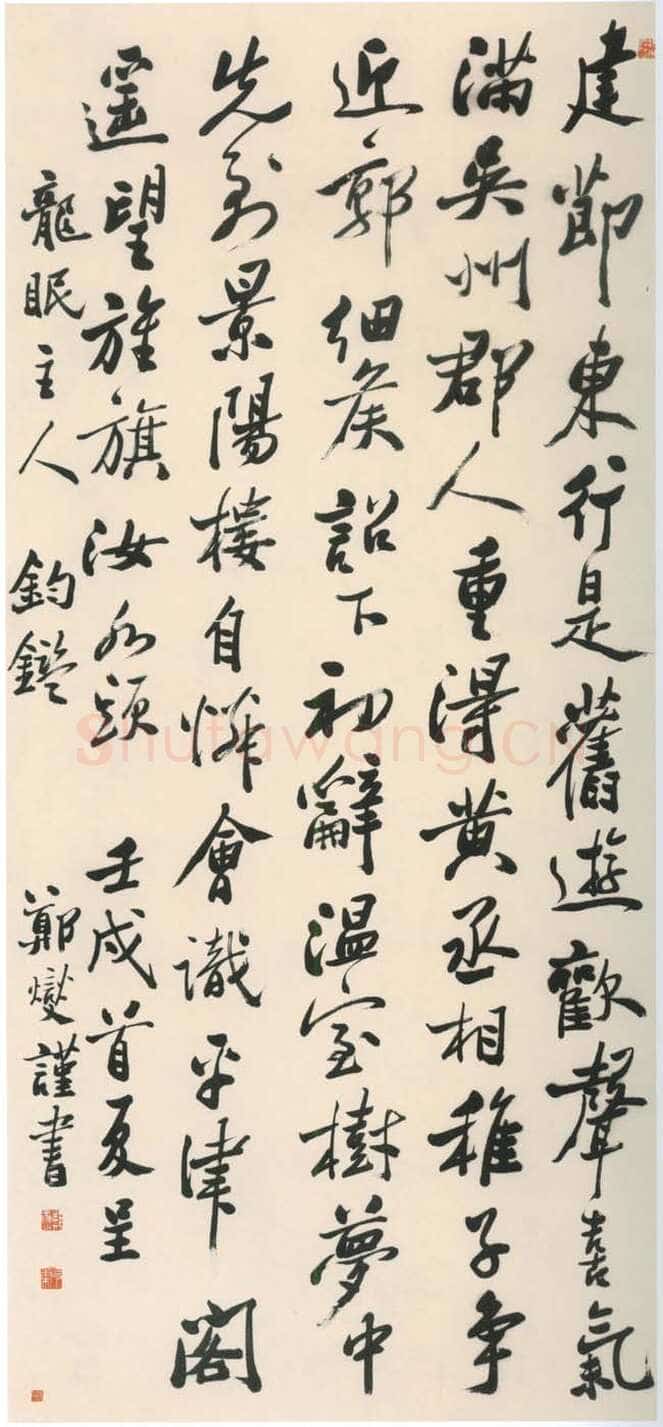 建節東行是舊遊歡聲喜氣
滿吳州郡人重得黃丞相稚子争
近郭細侯詔下初辭溫室樹夢中
先到景陽樓自憐會識平津閣
遙望旌旗汝水頭 壬戌首夏呈
龍眠主人 鈞鑑 鄭燮謹書
Shufawang.cn